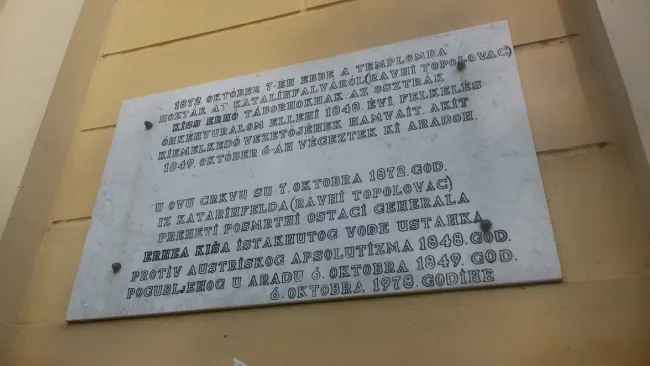 1872 OKTÓBER 7-ÉH EBBE A TEMPLOMBA
HOZTÁK ÁT KATALIHFALVÁRÓL(RAVHI TOPOLOVAC)
KISS ERHŐ TÁBORHOKHAK. AZ OSZTRÁK
ÖHKÉHYURALOM ELLEHI 1848. ÉVI FELKELÉS
KIEMELKEDŐ VEZETŐJÉHEK HAMVAIT AKIT
1849. OKTÓBER 6-ÁH VÉGEZTEK KI ARADOH.
U OVU CRKVU SU 7. OKTOBRA 1872. GOD.
IZ KATARIHFELDA(RAVHI TOPOLOVAC)
PREHETI POSMRTHI OSTACI GEHERALA
ERHEA KIŠA ISTAKHUTOG VOĐE USTAHKA
PROTIV AUSTRISKOG APSOLUTIZMA 1848. GOD.
POGUBLJEHOG U ARADU 6. OKTOBRA 1849. GOD.
6. OKTOBRA 1978. GODIHE